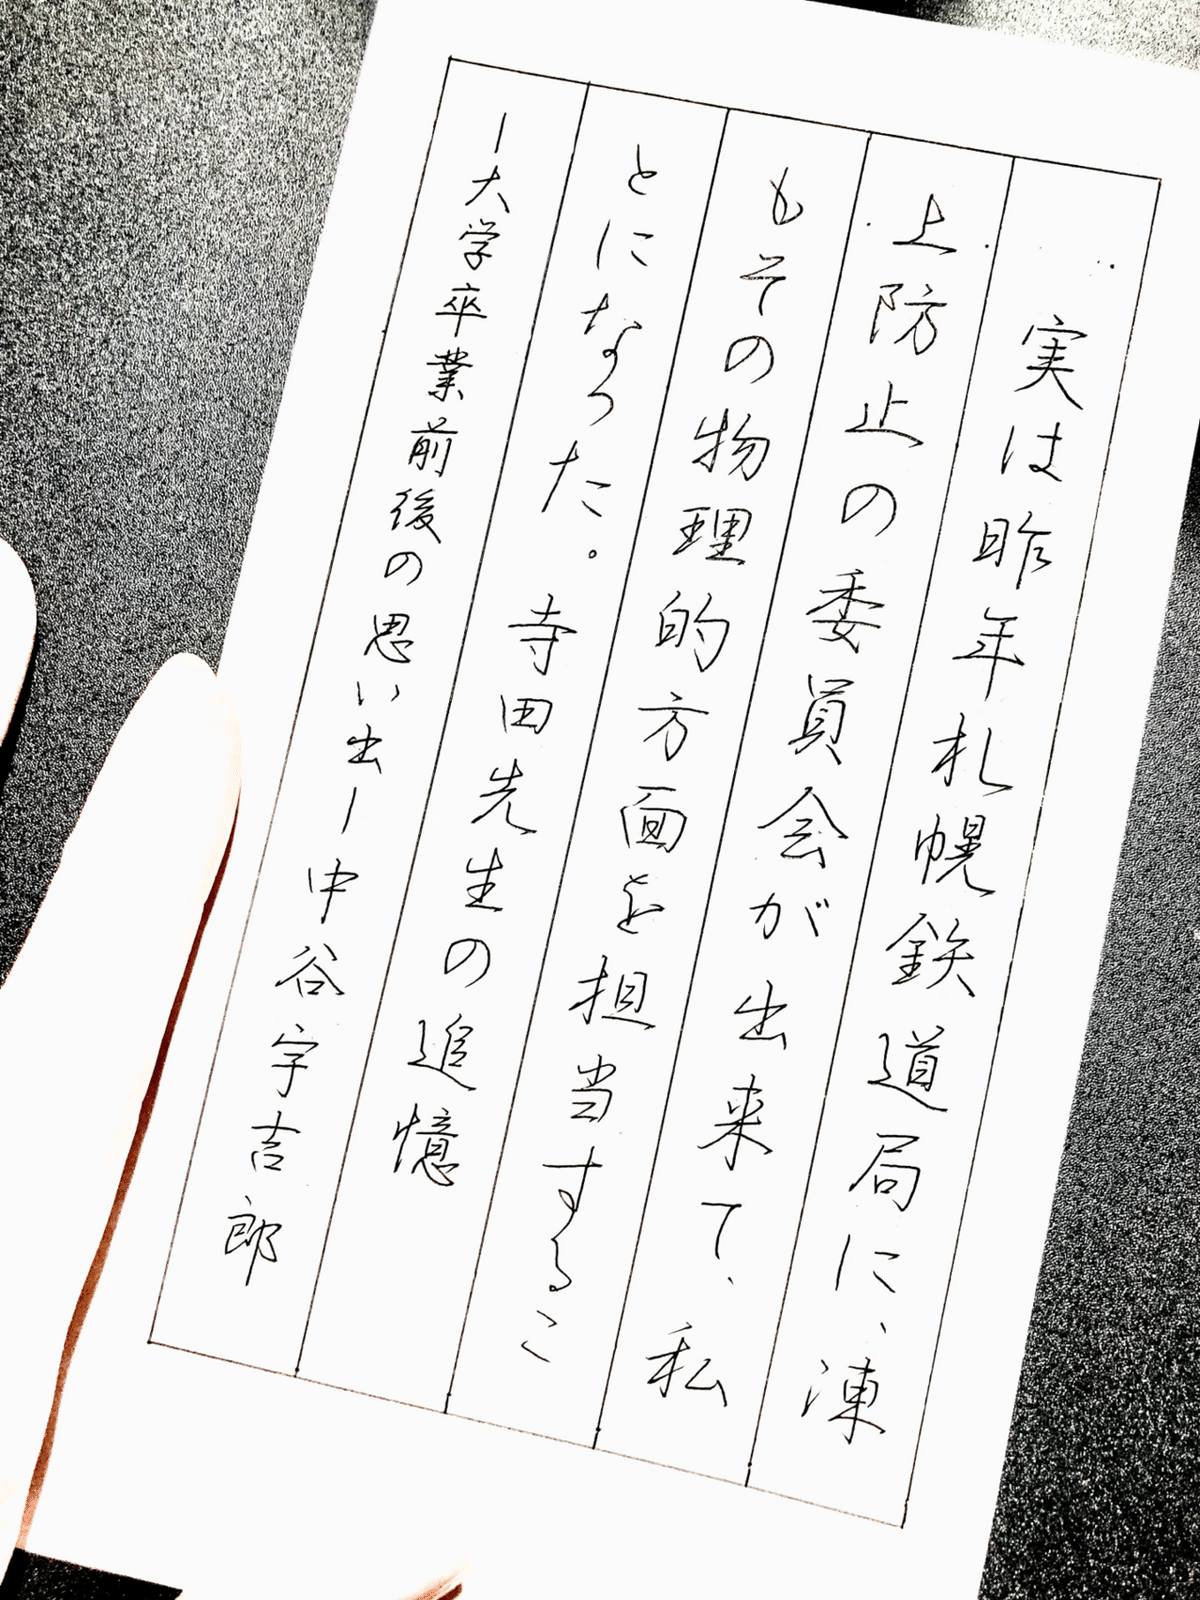 実は昨年札幌鉄道局に、凍
上防止の委員会が出来て、私
もその物理的方面を担当するこ
とになった。寺田先生の追憶
ー大学卒業前後の思い出ー中谷宇吉郎